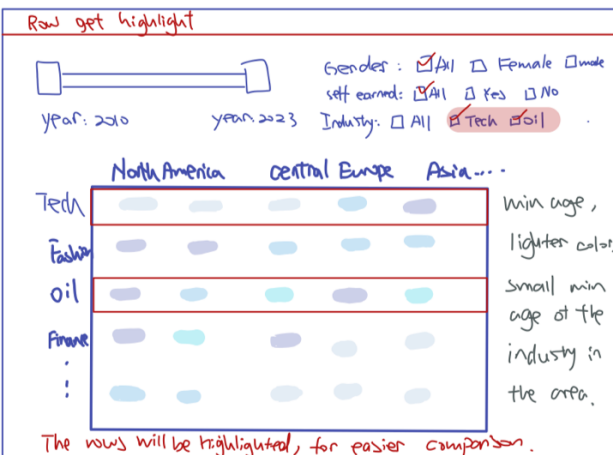 Row get highlight
Gender: All Female male
self earned: All Yes No
year: 2010 year: 2023 Industry: All Tech Oil
North America central Europe Asia....
Tech
Fashion
Oil
Finance
min age,
lighter color,
small min
age of the
industry in
the area.
The rows will be highlighted, for easier comparison.